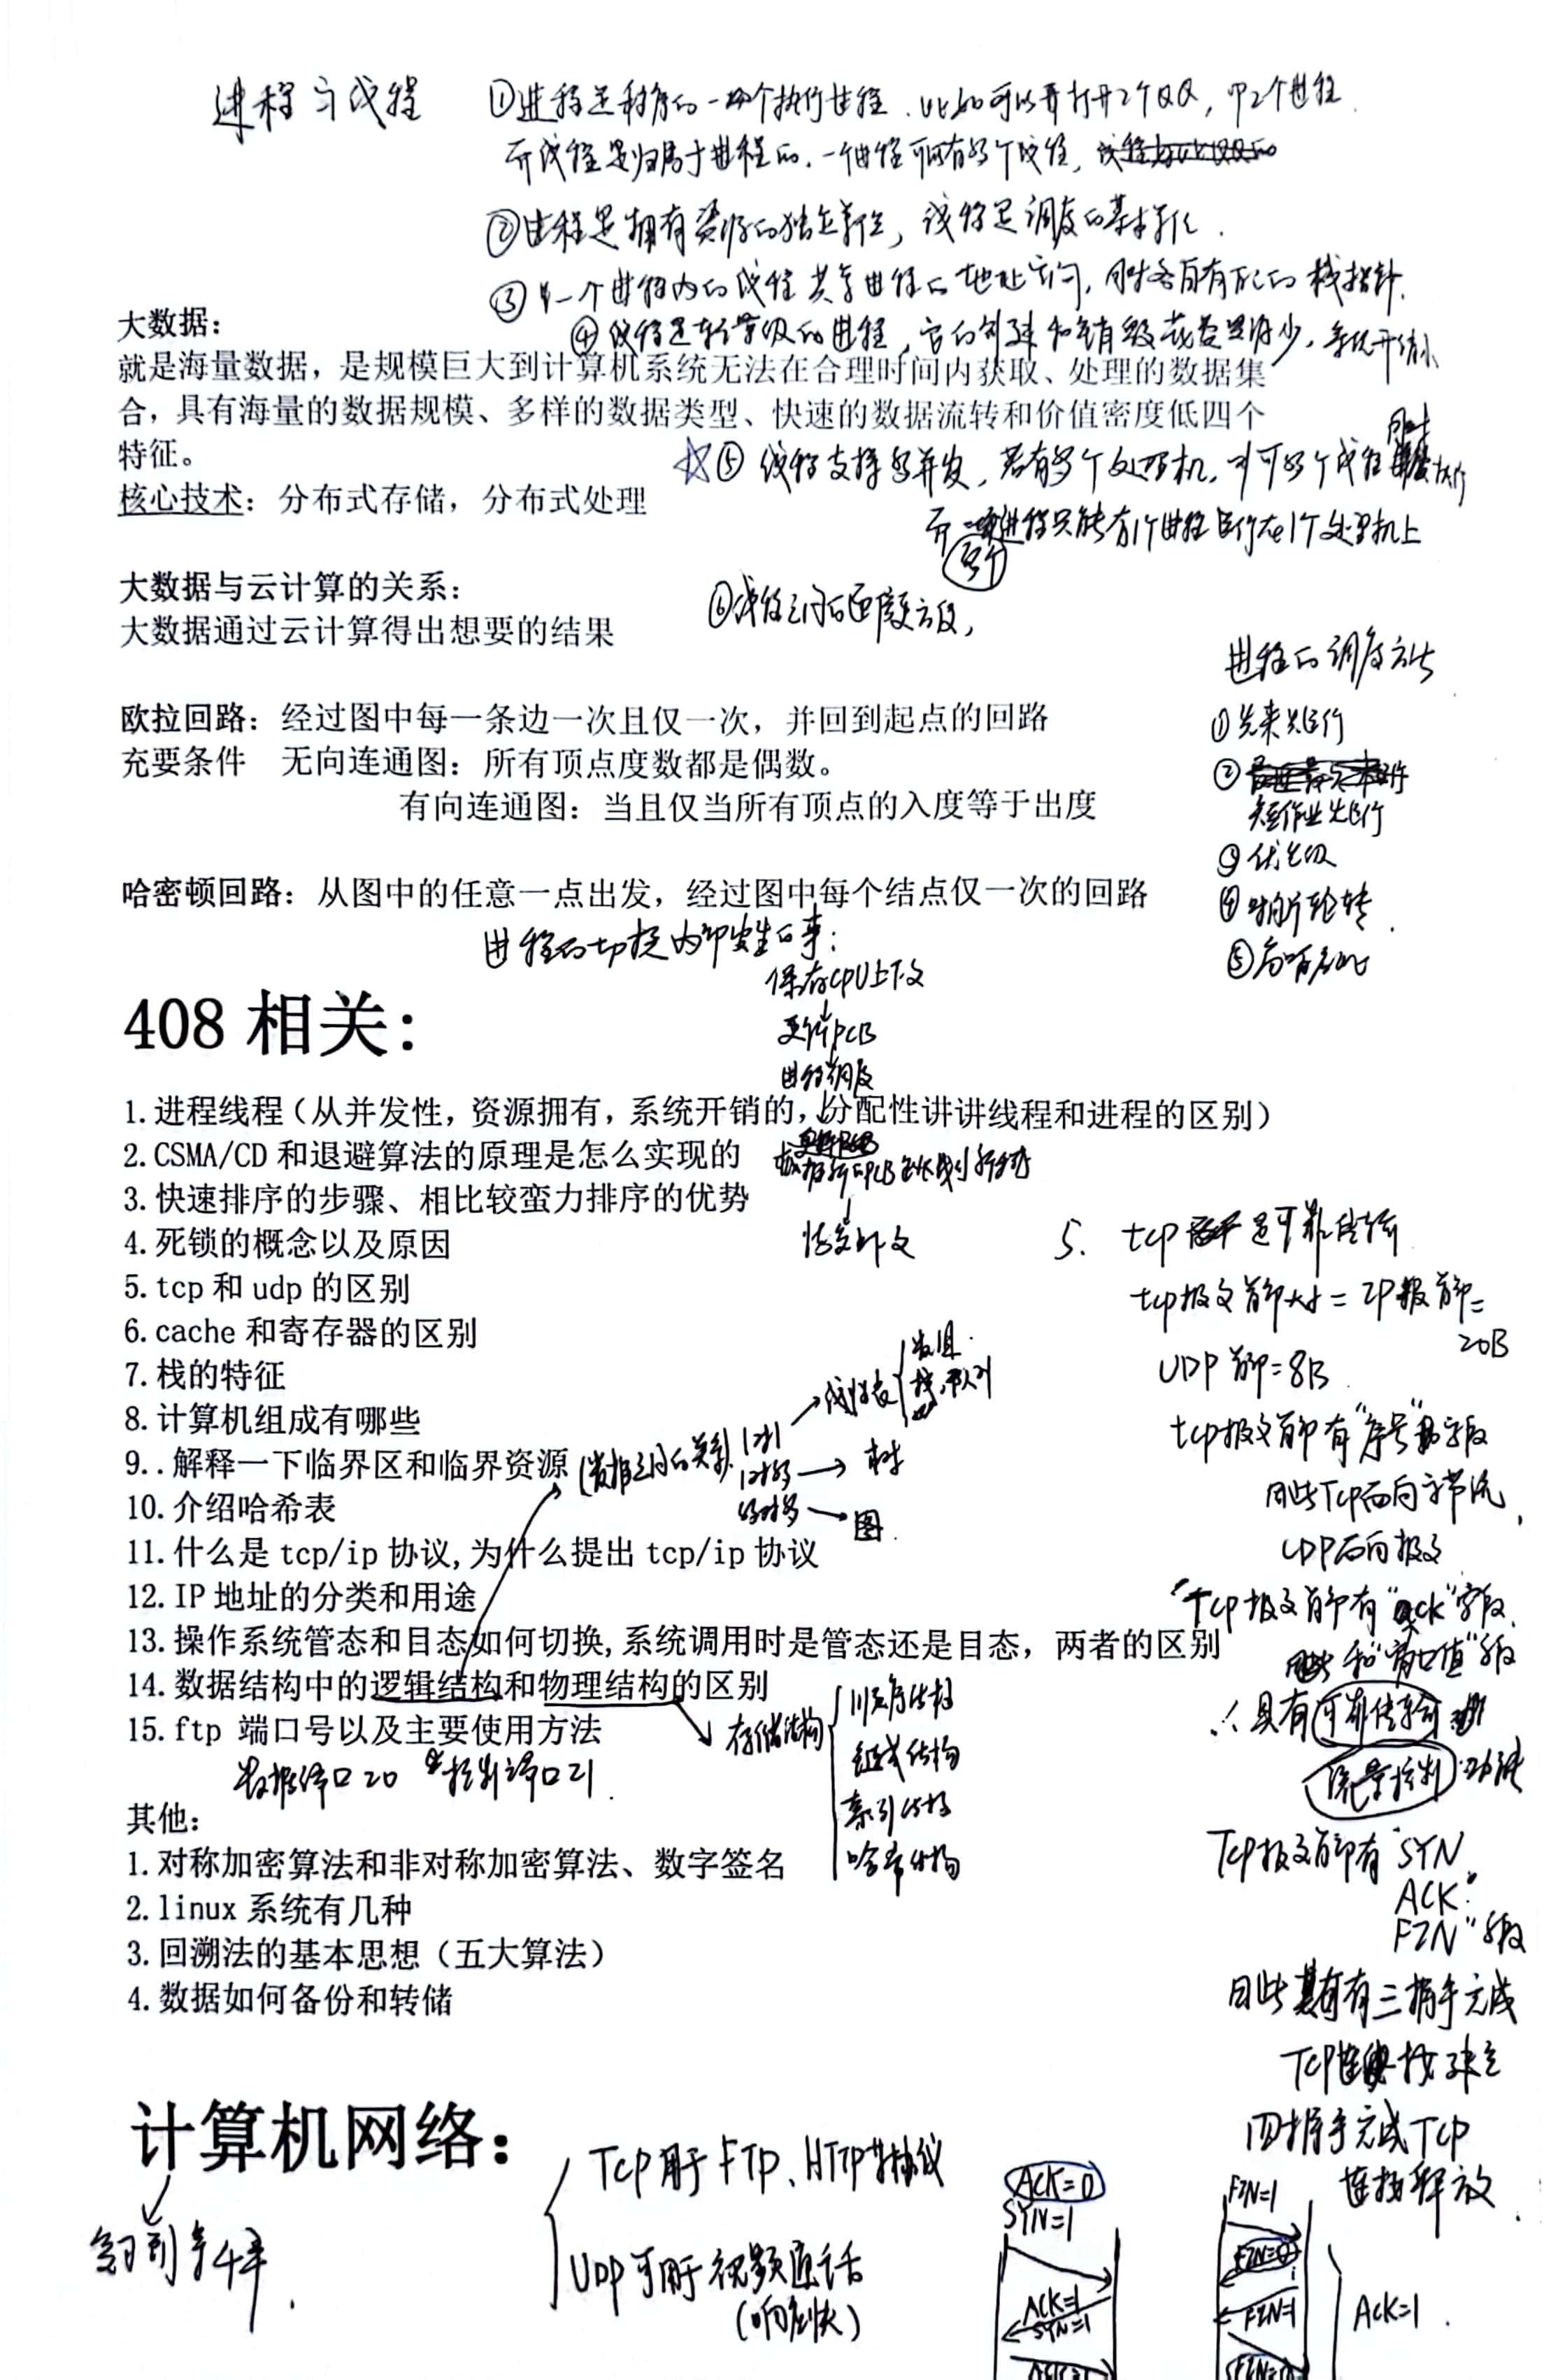 进程与线程
①进程是程序的一个执行过程，比如可以打开2个QQ，即2个进程
而线程是归属于进程的，一个进程可拥有多个线程，
②进程是拥有资源的独立单位，线程是调度的基本单位．
③ 一个进程内的线程共享进程的地址空间，同时各自有自己的栈指针．
大数据：
④线程是轻量级的进程，它的创建和销毁
就是海量数据，是规模巨大到计算机系统无法在合理时间内获取、处理的数据集
合，具有海量的数据规模、多样的数据类型、快速的数据流转和价值密度低四个
特征。
☆⑤ 线程支持多并发，若有多个处理机，则可多个线程同时执行
核心技术：分布式存储，分布式处理
而进程只能有1个进程运行在1个处理机上
多个
大数据与云计算的关系：
大数据通过云计算得出想要的结果
⑥线程之间的
进程的调度方法
①先来先运行
②
短作业先运行
③优先级
④时间片轮转
⑤高响应比
欧拉回路：经过图中每一条边一次且仅一次，并回到起点的回路
充要条件 无向连通图：所有顶点度数都是偶数。
有向连通图：当且仅当所有顶点的入度等于出度
哈密顿回路：从图中的任意一点出发，经过图中每个结点仅一次的回路
进程的切换内部发生的事：
保存CPU上下文
更新PCB
进程调度
恢复上下文
408 相关：
1.进程线程（从并发性，资源拥有，系统开销的，分配性讲讲线程和进程的区别）
2.CSMA/CD 和退避算法的原理是怎么实现的
3.快速排序的步骤、相比较蛮力排序的优势
4.死锁的概念以及原因
5.tcp 和 udp 的区别
6.cache 和寄存器的区别
7.栈的特征
8.计算机组成有哪些
9..解释一下临界区和临界资源
10.介绍哈希表
11.什么是 tcp/ip 协议,为什么提出 tcp/ip 协议
12.IP 地址的分类和用途
13.操作系统管态和目态如何切换,系统调用时是管态还是目态，两者的区别
14.数据结构中的逻辑结构和物理结构的区别
15.ftp 端口号以及主要使用方法
数据端口20 控制端口21
(数据之间的关系)
1对1
线性表
数组
栈、队列
1对多
树
多对多
图
存储结构
顺序结构
链式结构
索引结构
哈希结构
其他：
1.对称加密算法和非对称加密算法、数字签名
2.linux 系统有几种
3.回溯法的基本思想（五大算法）
4.数据如何备份和转储
5. tcp 是可靠传输
tcp报文首部大小=IP报首部=
20B
UDP首部=8B
tcp报文首部有“序号”字段
因此TCP面向字节流，
UDP面向报文
TCP报文首部有“ack”字段
和“窗口值”字段
∴具有可靠传输
流量控制功能
TCP报文首部有“SYN
ACK
FIN”字段
因此具有三握手完成
TCP连接建立
四握手完成TCP
连接释放
计算机网络：
复习到第4章．
TCP用于FTP、HTTP等协议
UDP可用于视频通话
(响应快)
ACK=0
SYN=1
ACK=1
SYN=1
FIN=1
FIN=1
ACK=1